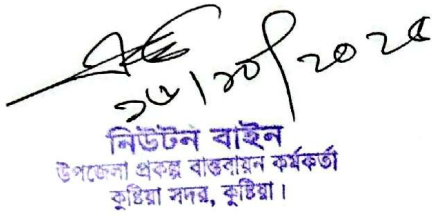 ২০২৫
নিউটন বাইন
উপজেলা প্রকল্প বাস্তবায়ন কর্মকর্তা
কুষ্টিয়া সদর, কুষ্টিয়া।